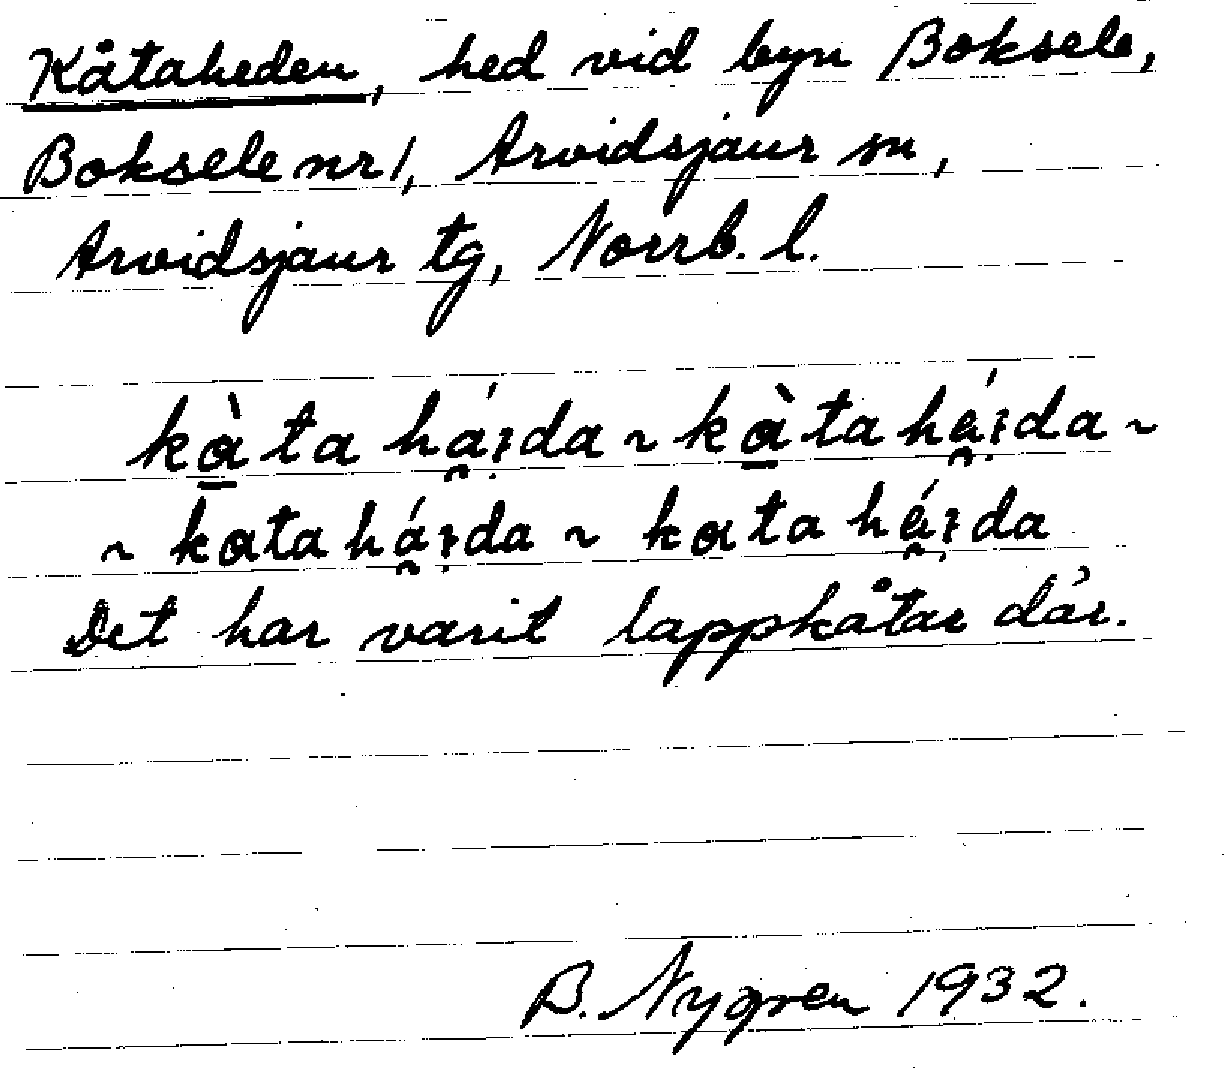 Kåtaheden, hed vid byn Boksele,
Boksele nr 1, Arvidsjaur sn,
Arvidsjaur tg, Norrb. l.
kɑ̱̀ta há̯ı̣da ~ kɑ̱̀ta hé̯ı̣da ~
~ kɑta há̯ı̣da ~ kɑta hé̯ı̣da
Det har varit lappkåtar där.
B. Nygren 1932.